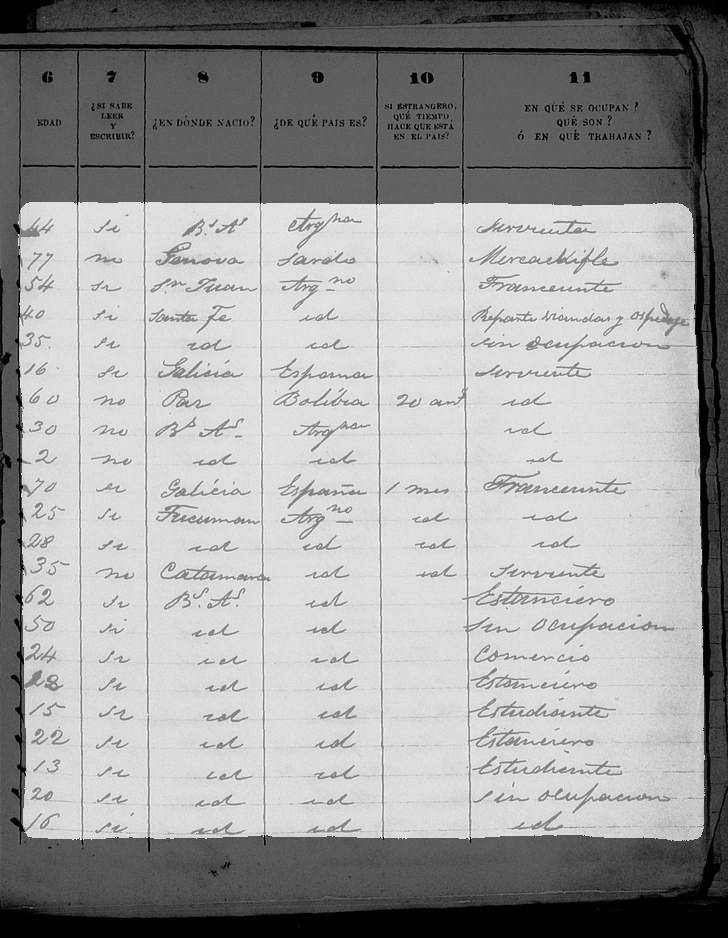 6 7 8 9 10 11
EDAD ¿SI SABE LEER Y ESCRIBIR? ¿EN DÓNDE NACIO? ¿DE QUÉ PAIS ES? SI ESTRANGERO, QUÉ TIEMPO HACE QUE ESTÁ EN EL PAIS? EN QUÉ SE OCUPAN? QUÉ SON? Ó EN QUÉ TRABAJAN?
44 si Bs As Argna sirvienta
77 no Genova Sardo Mercachifle
54 si Sn Juan Argno Franceunte
40 si Santa Fe id Reparte viandas y
35 si id id sin ocupacion
16 si Galicia Espana sirviente
60 no Paz Bolibia 20 ans id
30 no Bs As Argna id
2 no id id id
70 si Galicia España 1 mes Franceunte
25 si Tucuman Argno id id
28 si id id id id
35 no Catamarca id id sirviente
62 si Bs As id Estanciero
50 si id id sin ocupacion
24 si id id Comercio
28 si id id Estanciero
15 si id id Estudiante
22 si id id Estanciero
13 si id id Estudiante
20 si id id sin ocupacion
16 si id id id